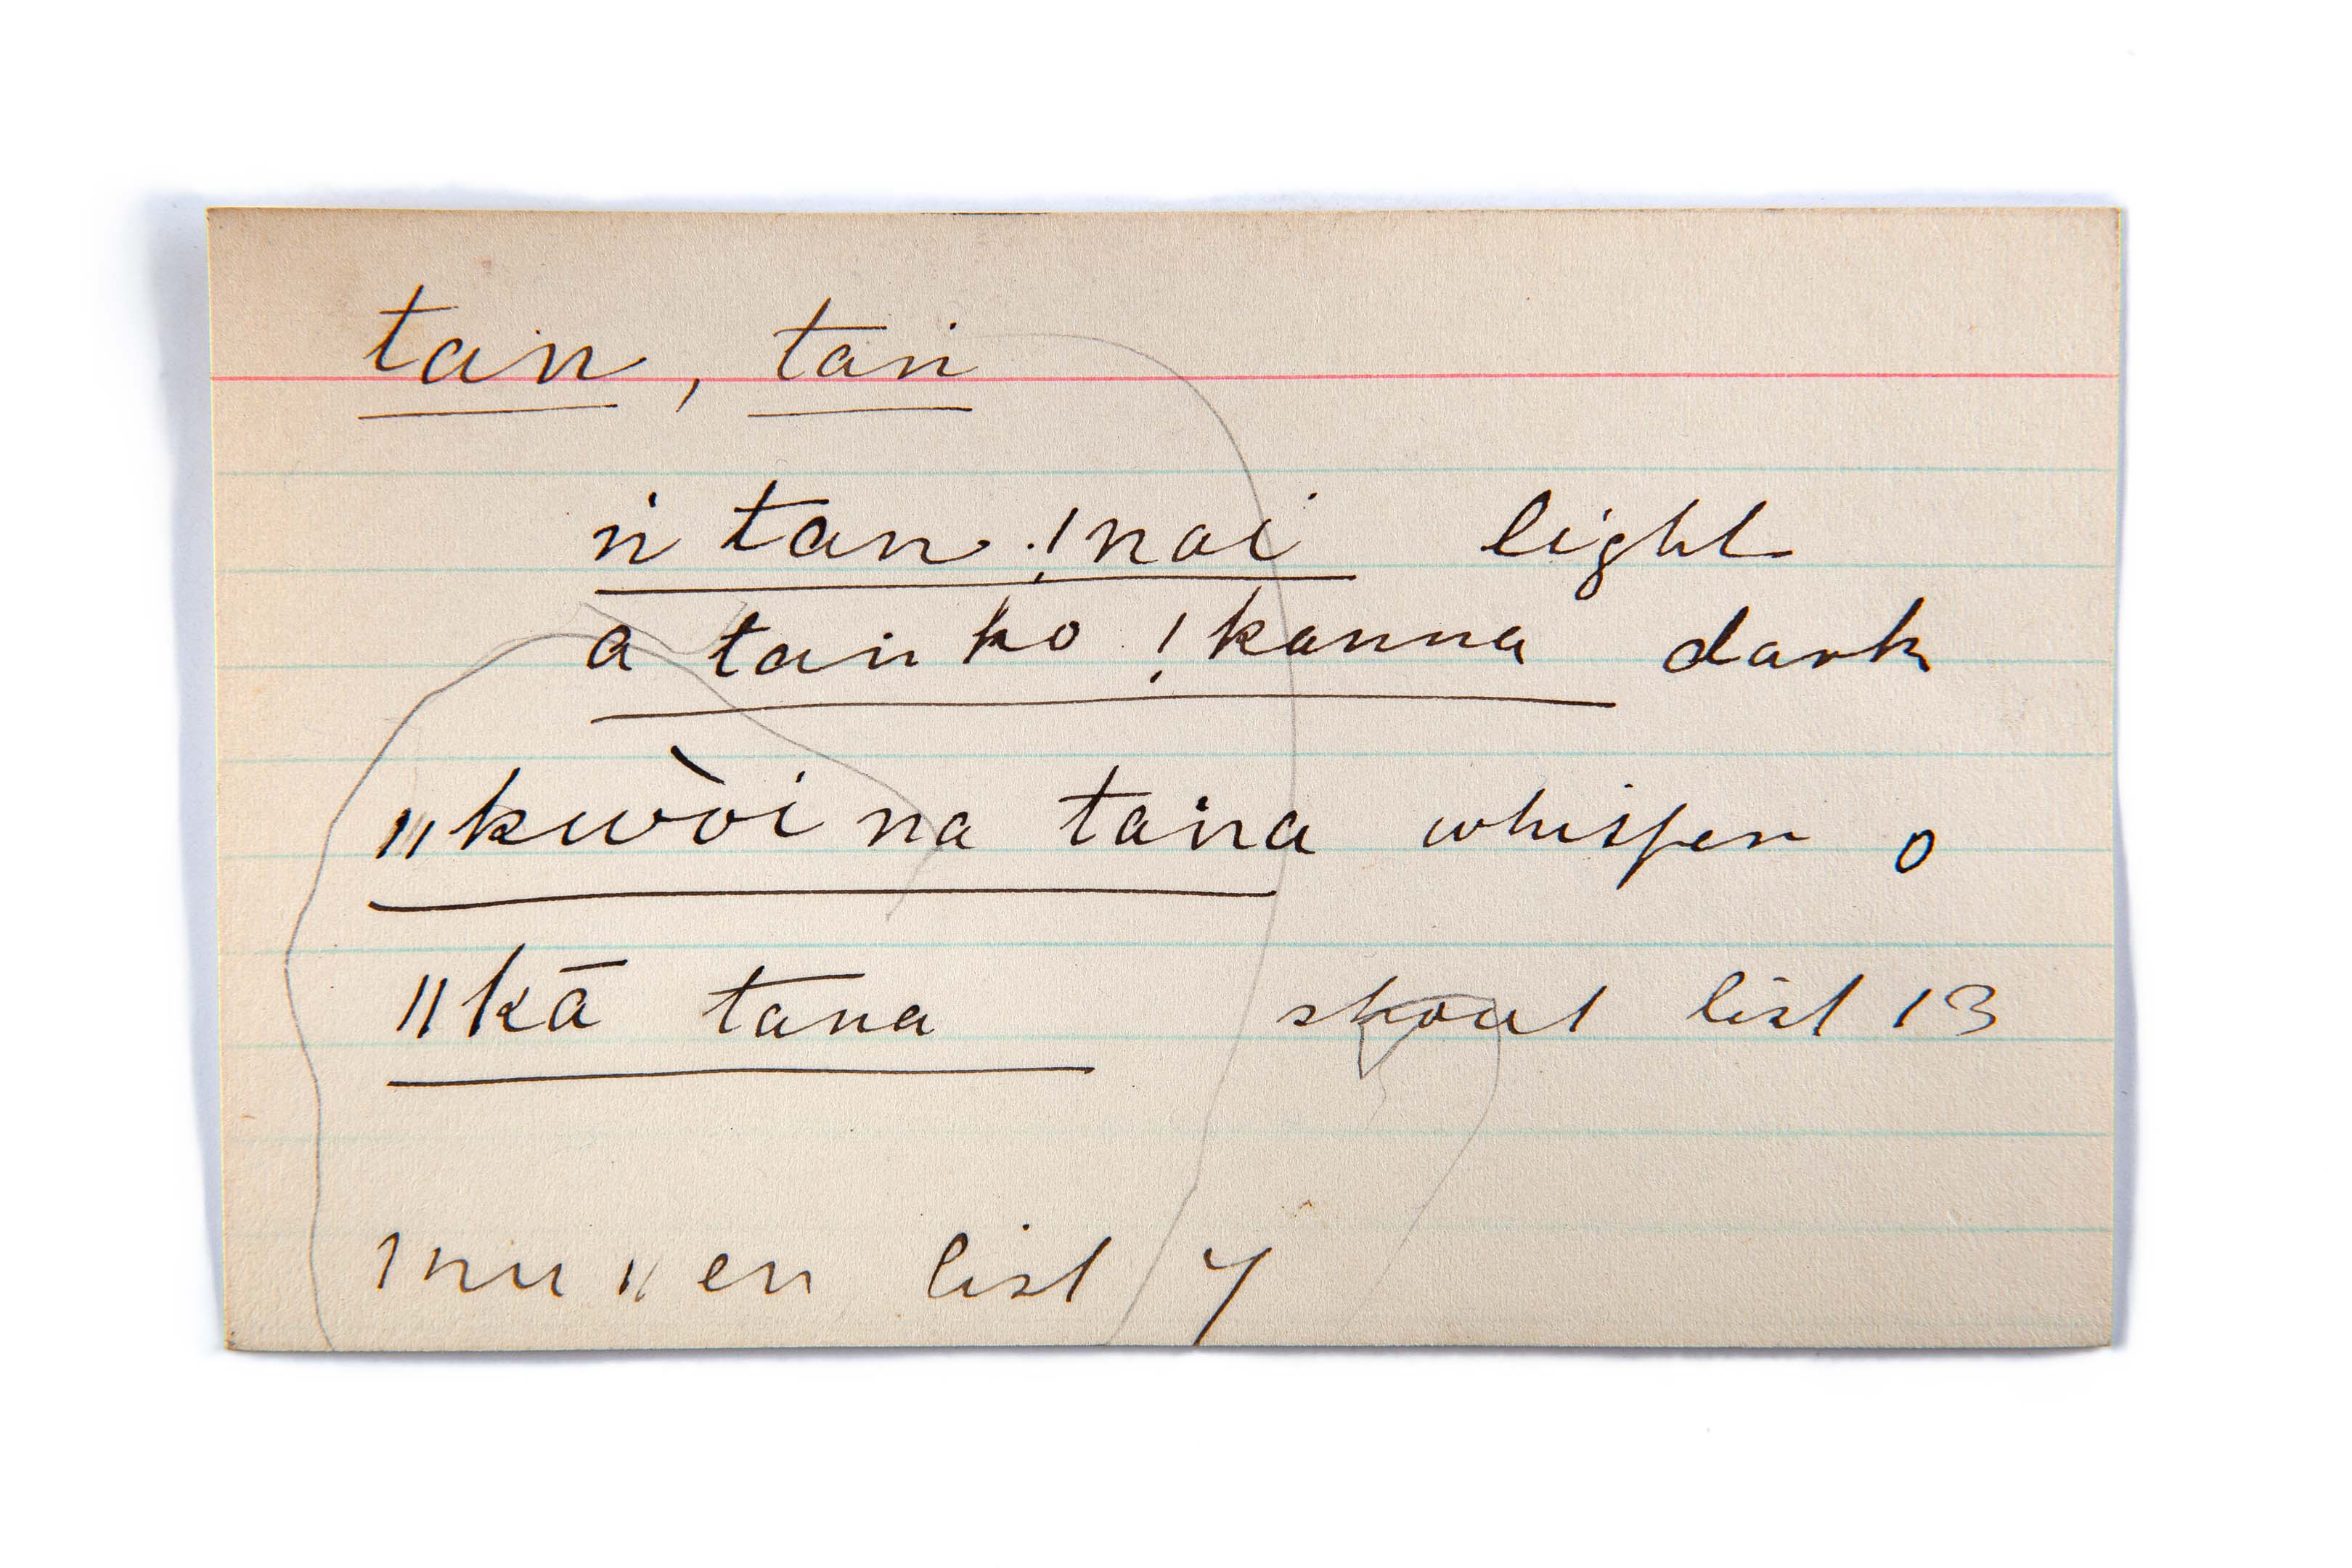 tan, taṅ
ṅ tan !nai light
a taṅ ko !kanna dark
ǁkwòi na taṅa whisper o
ǁkā tana shout list 13
ǀnuǁen list Y